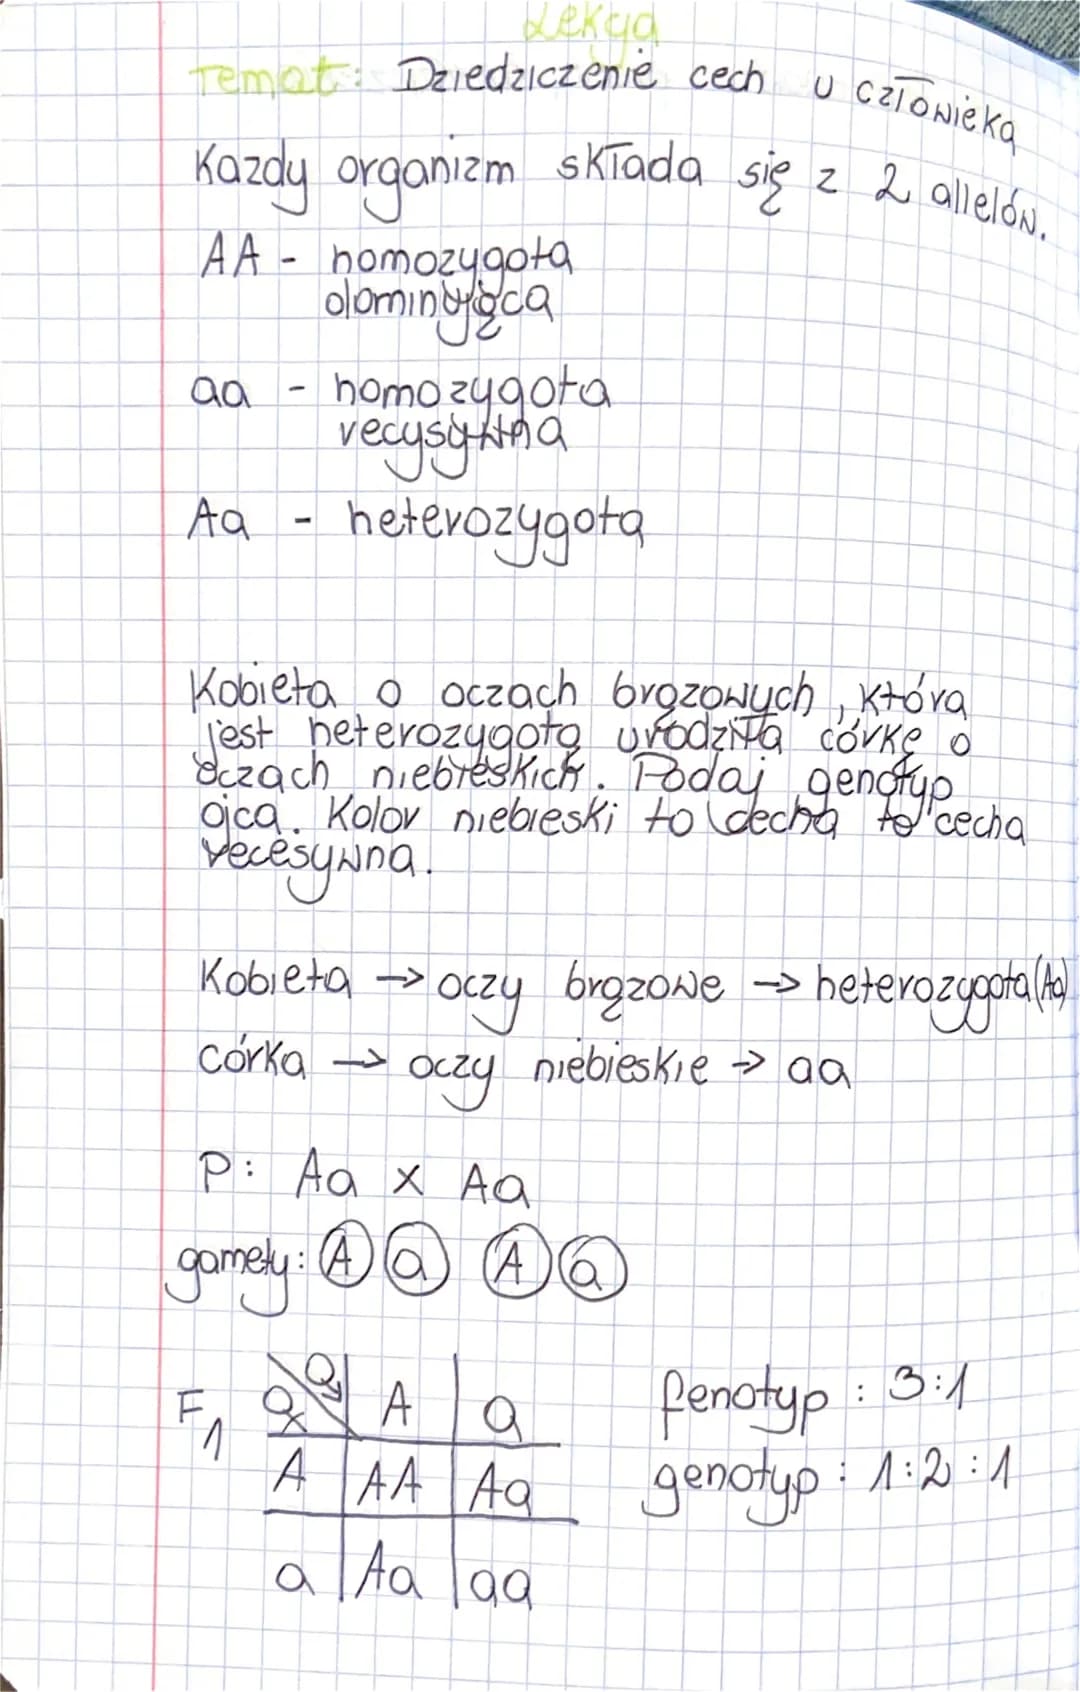 Lekcja
Temat: Dziedziczenie cech u człowieka
Kazdy organizm składa się z 2 alleów.
AA - homozygota
dominująca
aa - homozygota
recysywna
Aa - heterozygota
Kobieta o oczach brązowych, która
jest heterozygotą urodziła córkę o
oczach niebieskich. Podaj genotyp
ojca. Kolor niebieski to cecha to cecha
recesywna.
Kobieta → oczy brązowe → heterozygota (Aa)
córka → oczy niebieskie → aa
P: Aa x Aa
gamety: A a A a
F1 ♀ ♂ A a
A AA Aa
a Aa aa
fenotyp : 3:1
genotyp : 1:2:1